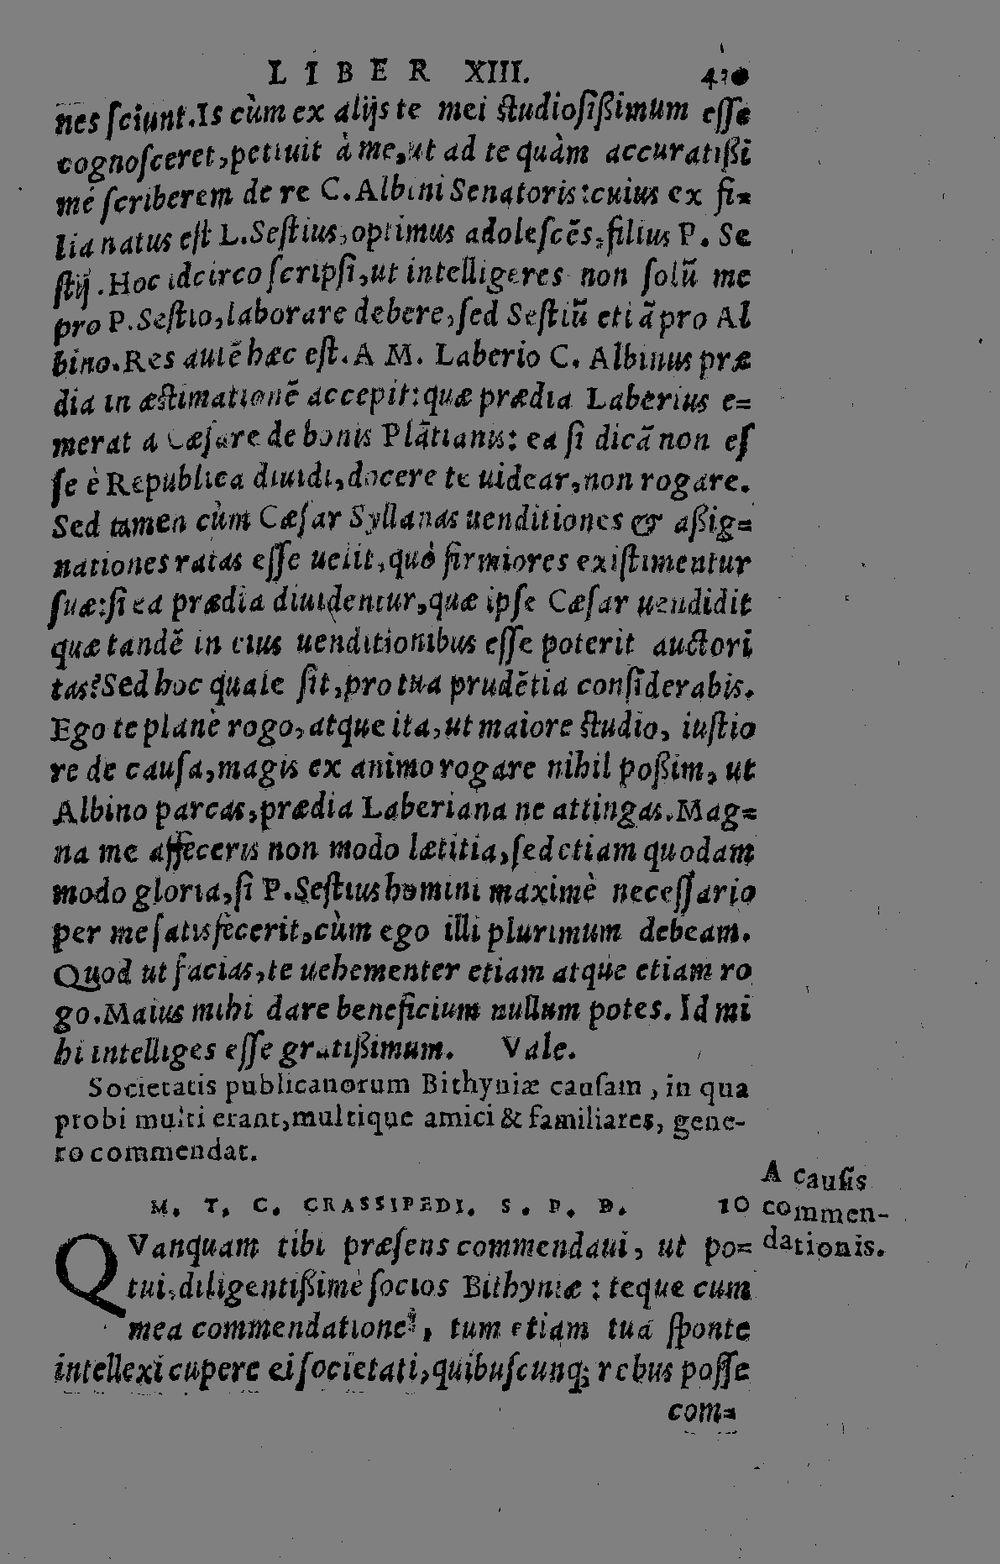 LIBER XIII.
nes ſciunt. Is cùm ex alijs te mei ſtudioſißimum eſſe
cognoſceret, petiuit à me, ut ad te quàm accuratißi
mé ſcriberem de re C. Albini Senatoris: cuius ex fi=
lia natus eſt L. Seſtius, optimus adoleſcẽs, filius P. Se
ſtij. Hoc idcirco ſcripſi, ut intelligeres non ſolũ me
pro P. Seſtio, laborare debere, ſed Seſtiũ etiã pro Al
bino. Res autẽ hæc eſt. A M. Laberio C. Albinus præ
dia in æſtimationẽ accepit: quæ prædia Laberius e=
merat a Cæſare de bonis Plãtianis: ea ſi dicã non eſ
ſe è Republica diuidi, docere te uidear, non rogare.
Sed tamen cùm Cæſar Syllanas uenditiones & aßig=
nationes ratas eſſe uelit, quò firmiores exiſtimentur
ſuæ: ſi ea prædia diuidentur, quæ ipſe Cæſar uendidit
quæ tandẽ in eius uenditionibus eſſe poterit auctori
tas? Sed hoc quale ſit, pro tua prudẽtia conſiderabis.
Ego te planè rogo, atque ita, ut maiore ſtudio, iuſtio
re de cauſa, magis ex animo rogare nihil poßim, ut
Albino parcas, prædia Laberiana ne attingas. Mag=
na me affeceris non modo lætitia, ſed etiam quodam
modo gloria, ſi P. Seſtius homini maximè neceſſario
per me ſatisfecerit, cùm ego illi plurimum debeam.
Quod ut facias, te uehementer etiam atque etiam ro
go. Maius mihi dare beneficium nullum potes. Id mi
hi intelliges eſſe gratißimum. Vale.
Societatis publicanorum Bithyniæ cauſam, in qua
probi multi erant, multique amici & familiares, gene-
ro commendat.
A cauſis
commen-
dationis.
M. T. C. CRASSIPEDI. S. P. D. 10
QVanquam tibi præſens commendaui, ut po=
tui, diligentißimè ſocios Bithyniæ: teque cum
mea commendatione, tum etiam tua ſponte
intellexi cupere ei ſocietati, quibuſcunq; rebus poſſe
com=